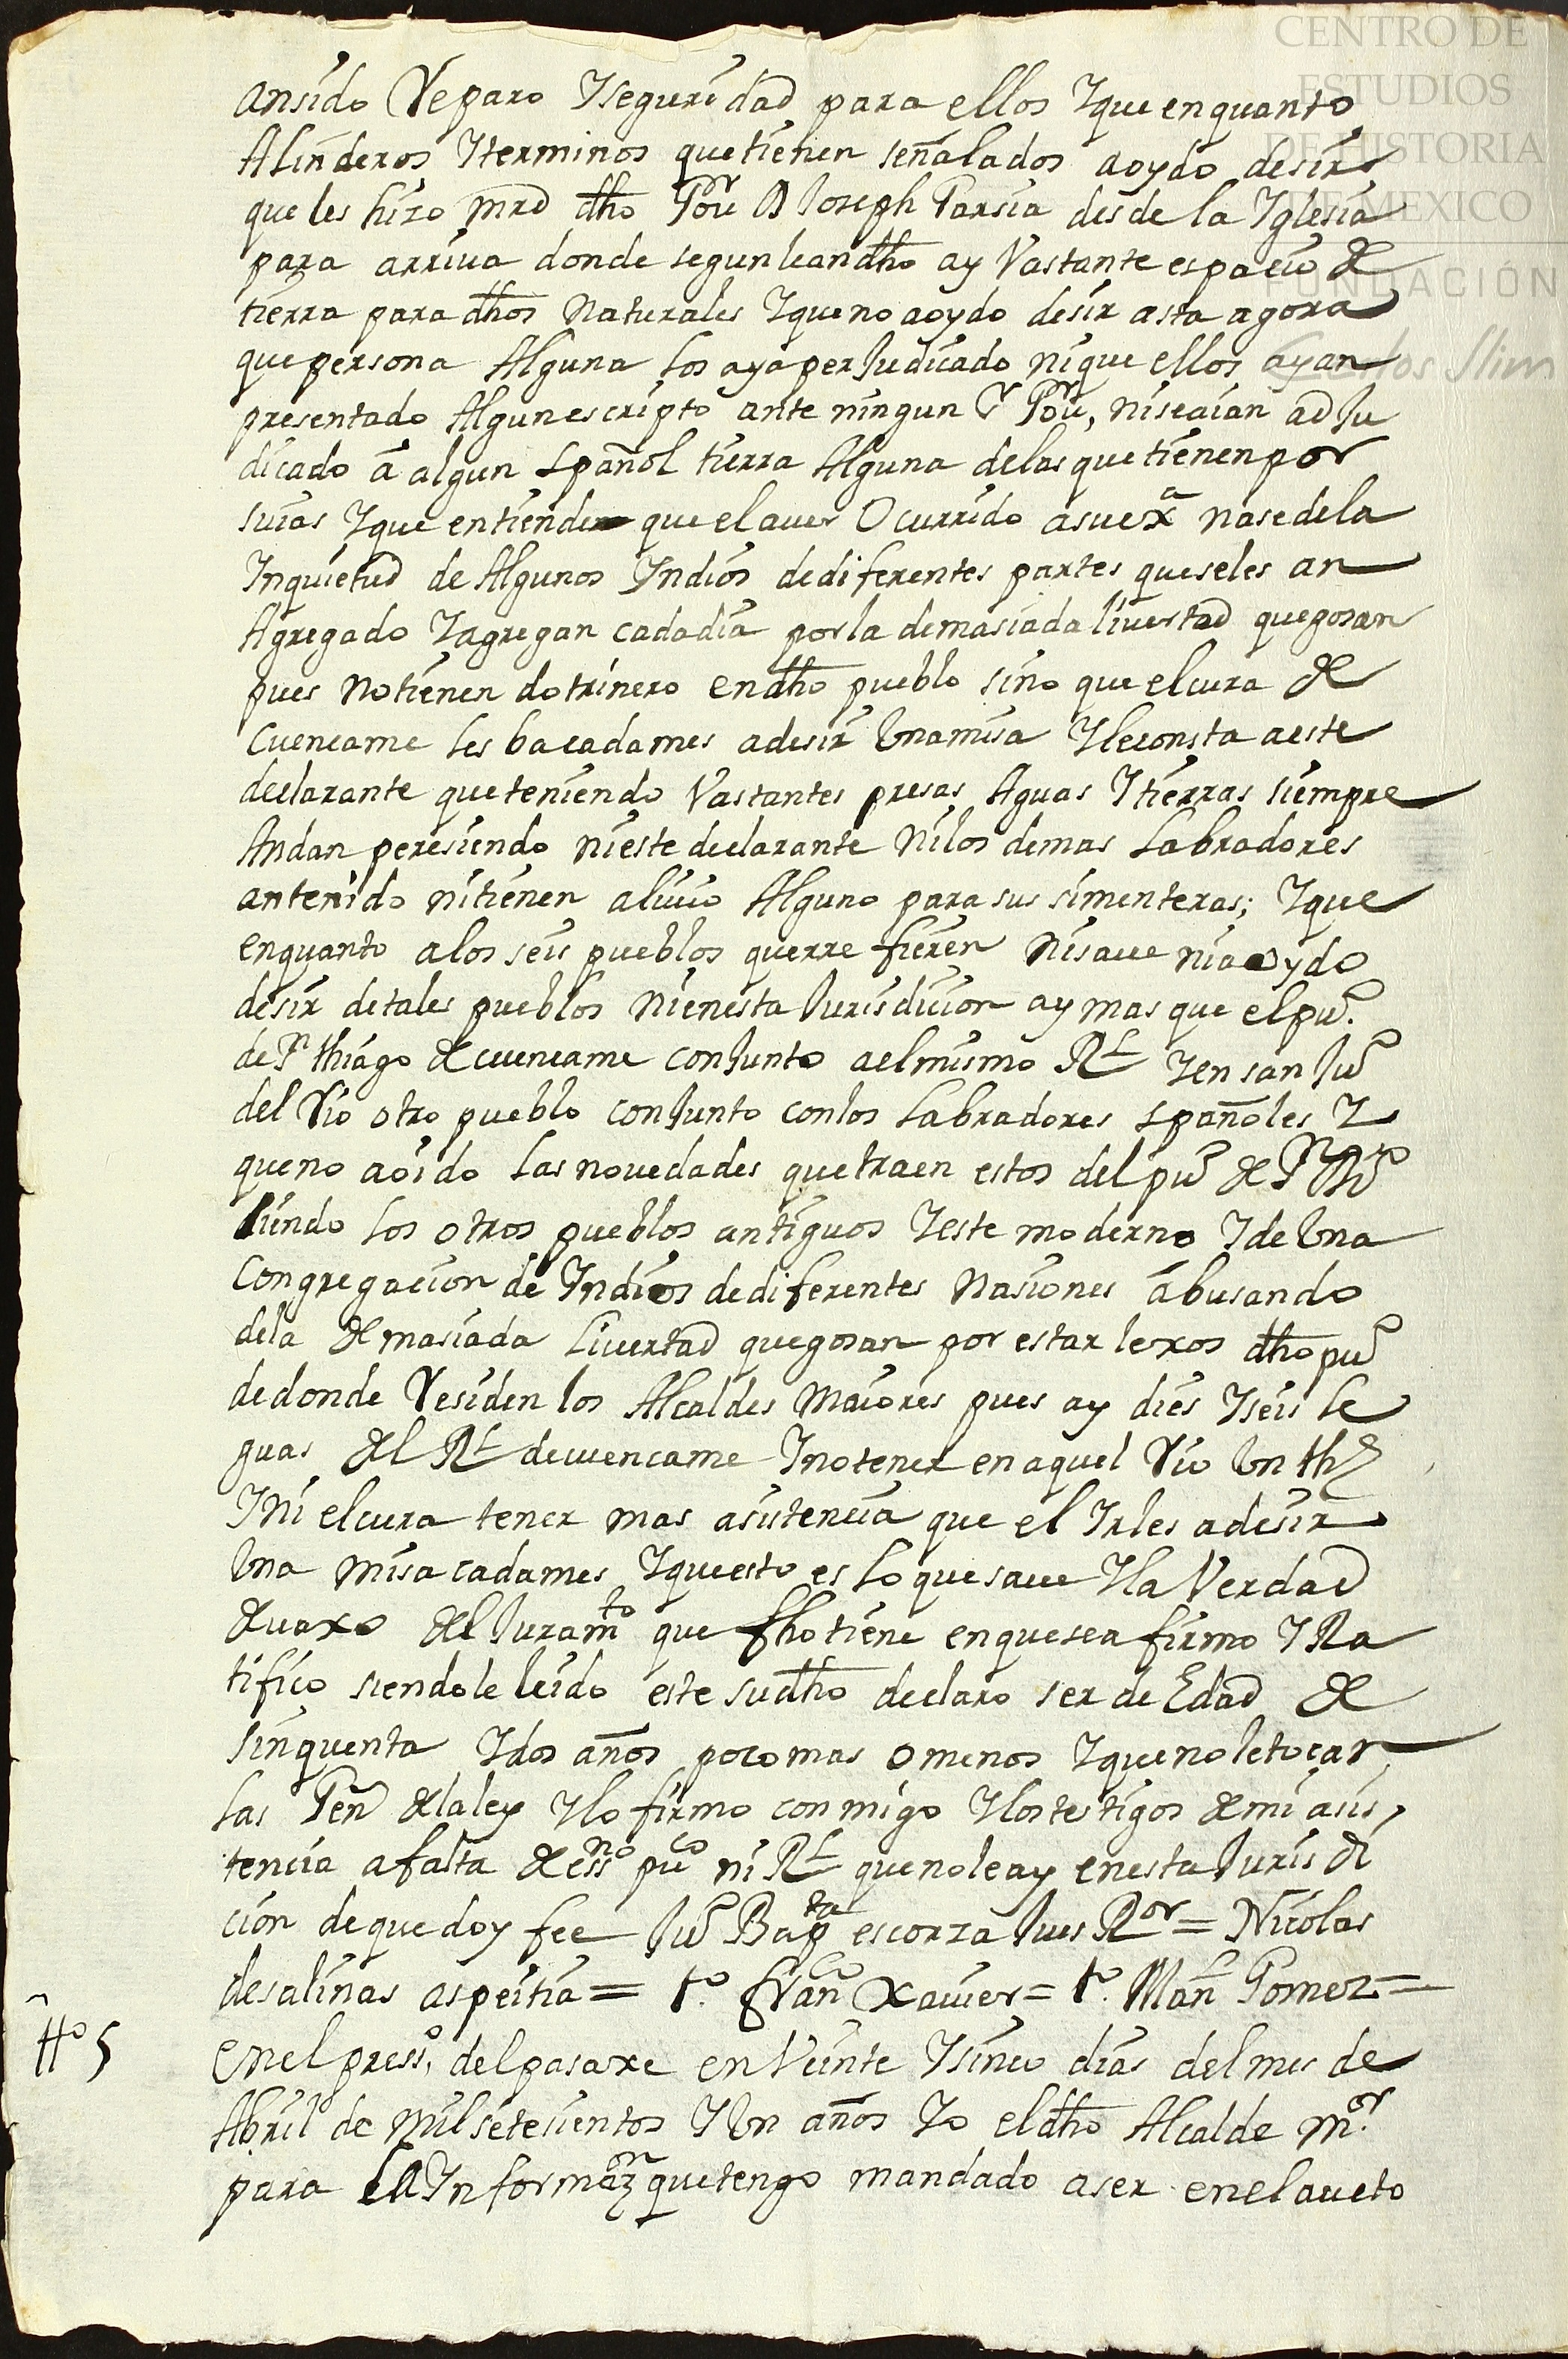 CENTRO DE
ESTUDIOS
DE HISTORIA
DE MEXICO
FUNDACIÓN
Carlos Slim
ansido Reparo Yseguridad para ellos Yque enquanto
Alinderos Yterminos quetienen señalados aoydo desir
que les hizo mrd dho Gou.r D Joseph Garsia desde la Yglesia
para arriua donde segun lean dho ay Vastante espacio de
tierra para dhos Naturales Yqueno aoydo desir asta agora
que persona Alguna los aya perJudicado nique ellos ayan
presentado Algun escripto ante ningun S.r Gou.r, niseaian adJu
dicado á algun español tierra Alguna delas quetienen por
suias Yque entiende que el auer Ocurrido asu ex.a nase dela
Ynquietud de Algunos Yndios dediferentes partes queseles an
Agregado Yagregan cadadia porla demasiada liuertad quegosan
pues notienen dotrinero en dho pueblo sino que elcura de
Cuencame les ba cadames adesir Vnamisa Yleconsta aeste
declarante queteniendo Vastantes presas Aguas Ytierras siempre
Andan peresiendo nieste declarante Nilos demas Labradores
antenido nitienen aliuio Alguno para sus simenteras; Yque
enquanto alos seis pueblos querrefieren nisaue niaoydo
desir detales pueblos nienesta Jurisdicion ay mas que elpu.o
de S.n thiago de cuencame conJunto aelmismo R.l Yen san Ju.o
del Rio otro pueblo conJunto conlos Labradores españoles Y
queno aoido las nouedades quetraen estos del pu.o de P.n
siendo los otros pueblos antiguos Yeste moderno Yde Vna
Congregacion de Yndios dediferentes Nasiones abusando
dela demasiada Liuertad quegosan por estar lexos dho pu.o
dedonde Residen los Alcaldes Maiores pues ay dies Yseis le
guas del R.l decuencame Ynotener enaquel Rio Vn th.e
Yni elcura tener mas asistencia que el Yrles adesir
Vna misa cadames Yqueesto es lo quesaue Yla Verdad
deuaxo del Juram.to que fho tiene enquesea firmo YRa
tifico siendole leido este sudho declaro ser de Edad de
sinquenta Ydos años poco mas omenos Yqueno letocan
las Gen.s dela ley Ylo firmo conmigo Ylos testigos demi asis
tencia afalta de ess.no pu.co ni R.l que no le ay enesta Jurisdi
cion dequedoy fee Ju.o Bap.ta escorza Jues R.or = Nicolas
desalinas aspeitia = t.o fran.co Xauier = t.o Man.l Gomez =
tt.o 5
Enel press.o delpasaxe en Veinte Ysinco dias delmes de
Abril de mil setesientos Y Vn años Yo el dho Alcalde m.or
para la Ynformaz.on quetengo mandado aser enelaueto